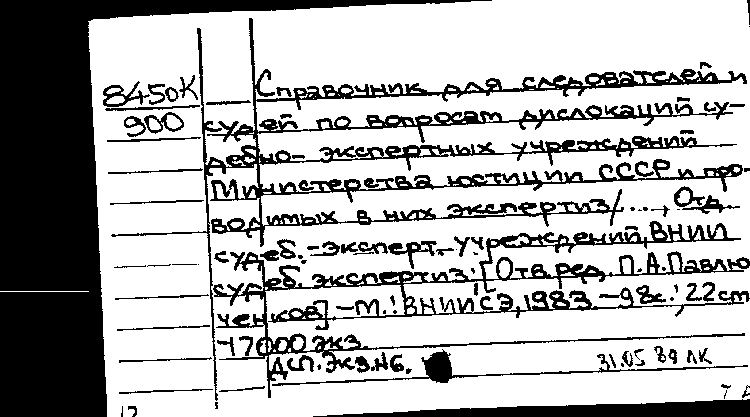 8450К Справочник для следователей и
900 судей по вопросам дислокаций су-
дебно-экспертных учреждений
Министерства юстиции СССР и про-
водимых в них экспертиз/..., Отд.
судеб.-эксперт. учреждений, ВНИИ
судеб. экспертиз; [Отв. ред. П.А. Павлю
ченков]. - М.: ВНИИСЭ, 1983. - 98с.; 22 см
-17000 экз.
ДСП. Экз. №6. 31.05.89 ЛК
12